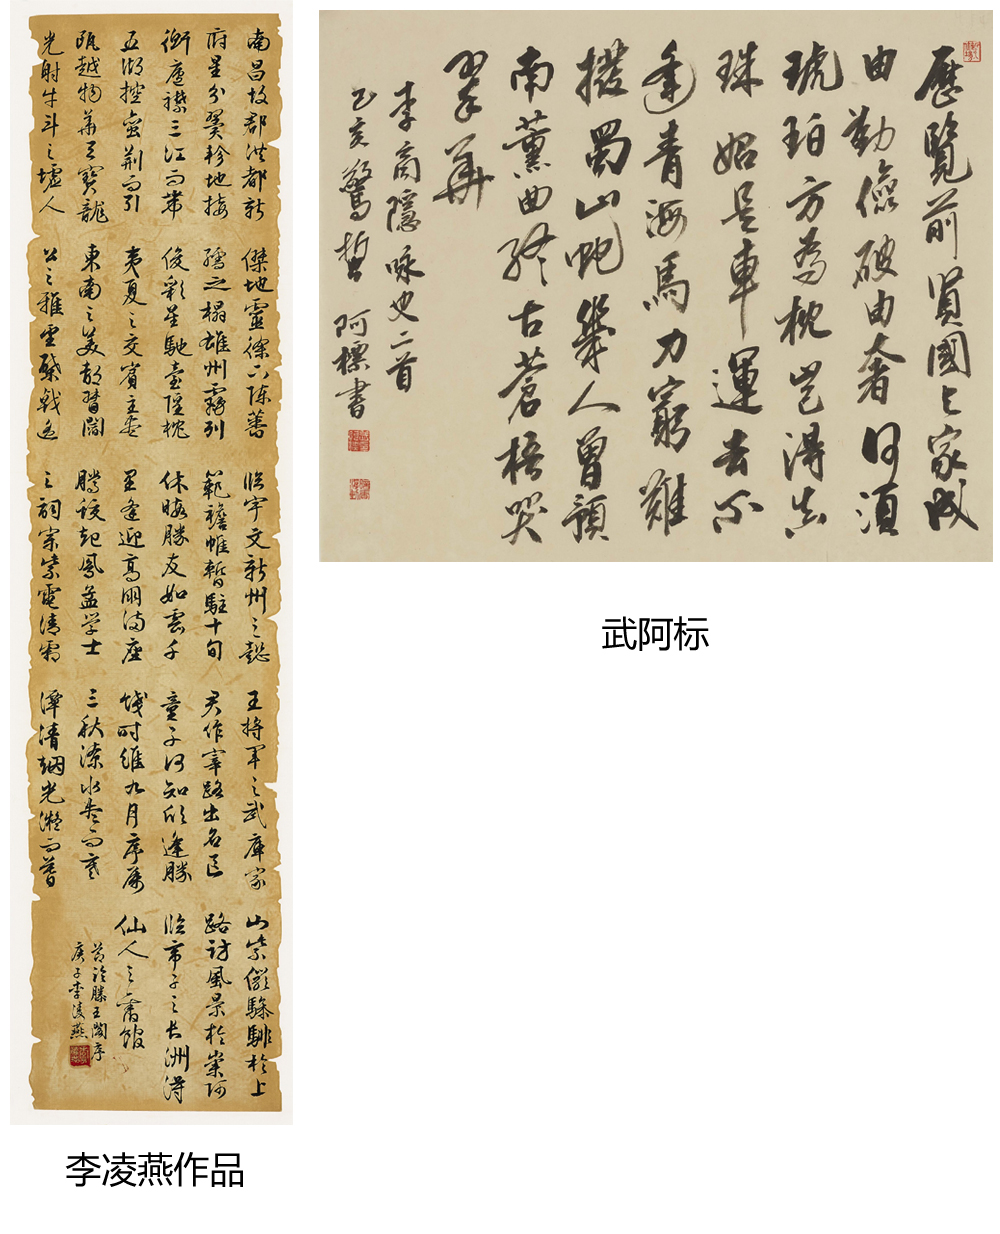 南昌故郡洪都新
府星分翼軫地接
衡廬襟三江而帶
五湖控蠻荊而引
甌越物華天寶龍
光射牛斗之墟人
傑地靈徐下陳蕃
孺之榻雄州霧列
俊彩星馳臺隍枕
夷夏之交賓主盡
東南之美都督閻
公之雅望棨戟遙
臨宇文新州之懿
範襜帷暫駐十旬
休暇勝友如雲千
里逢迎高朋滿座
騰蛟起鳳孟学士
之詞宗紫電清霜
王將軍之武庫家
君作宰路出名區
童子何知躬逢勝
餞時維九月序屬
三秋潦水盡而寒
潭清烟光凝而暮
山紫儼驂騑於上
路訪風景於崇阿
臨帝子之長洲得
仙人之舊館
節臨滕王閣序
庚子李凌燕
李凌燕作品
歷覽前賢國与家成
由勤儉破由奢何須
琥珀方為枕豈得真
珠始是車運去不
逢青海馬力窮難
拔蜀山蛇幾人曾預
南薰曲終古蒼梧哭
翠華
李商隱咏史二首
乙亥驚蟄 阿標書
武阿标